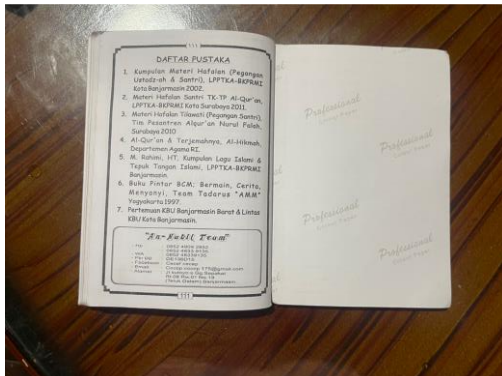 DAFTAR PUSTAKA
1. Kumpulan Materi Hafalan (Pegangan
Ustadz-ah & Santri), LPPTKA-BKPRMI
Kota Banjarmasin 2002.
2. Materi Hafalan Santri TK-TP Al-Qur'an,
LPPTKA-BKPRMI Kota Surabaya 2011.
3. Materi Hafalan Tilawati (Pegangan Santri),
Tim Pesantren Alqur'an Nurul Falah,
Surabaya 2010
4. Al-Qur'an & Terjemahnya, Al-Hikmah,
Departemen Agama RI.
5. M. Rahini, HT, Kumpulan Lagu Islami &
Tepuk Tangan Islami, LPPTKA-BKPRMI
Banjarmasin.
6. Buku Pintar BCM; Bermain, Cerita,
Menyanyi, Team Tadarus "AMM"
Yogyakarta 1997.
7. Pertemuan KBU Banjarmasin Barat & Lintas
KBU Kota Banjarmasin.
Team"
Facebook
Email
(Teluk Dalam) Banjarmasin
111
Professional
Professional
Professional
Professional